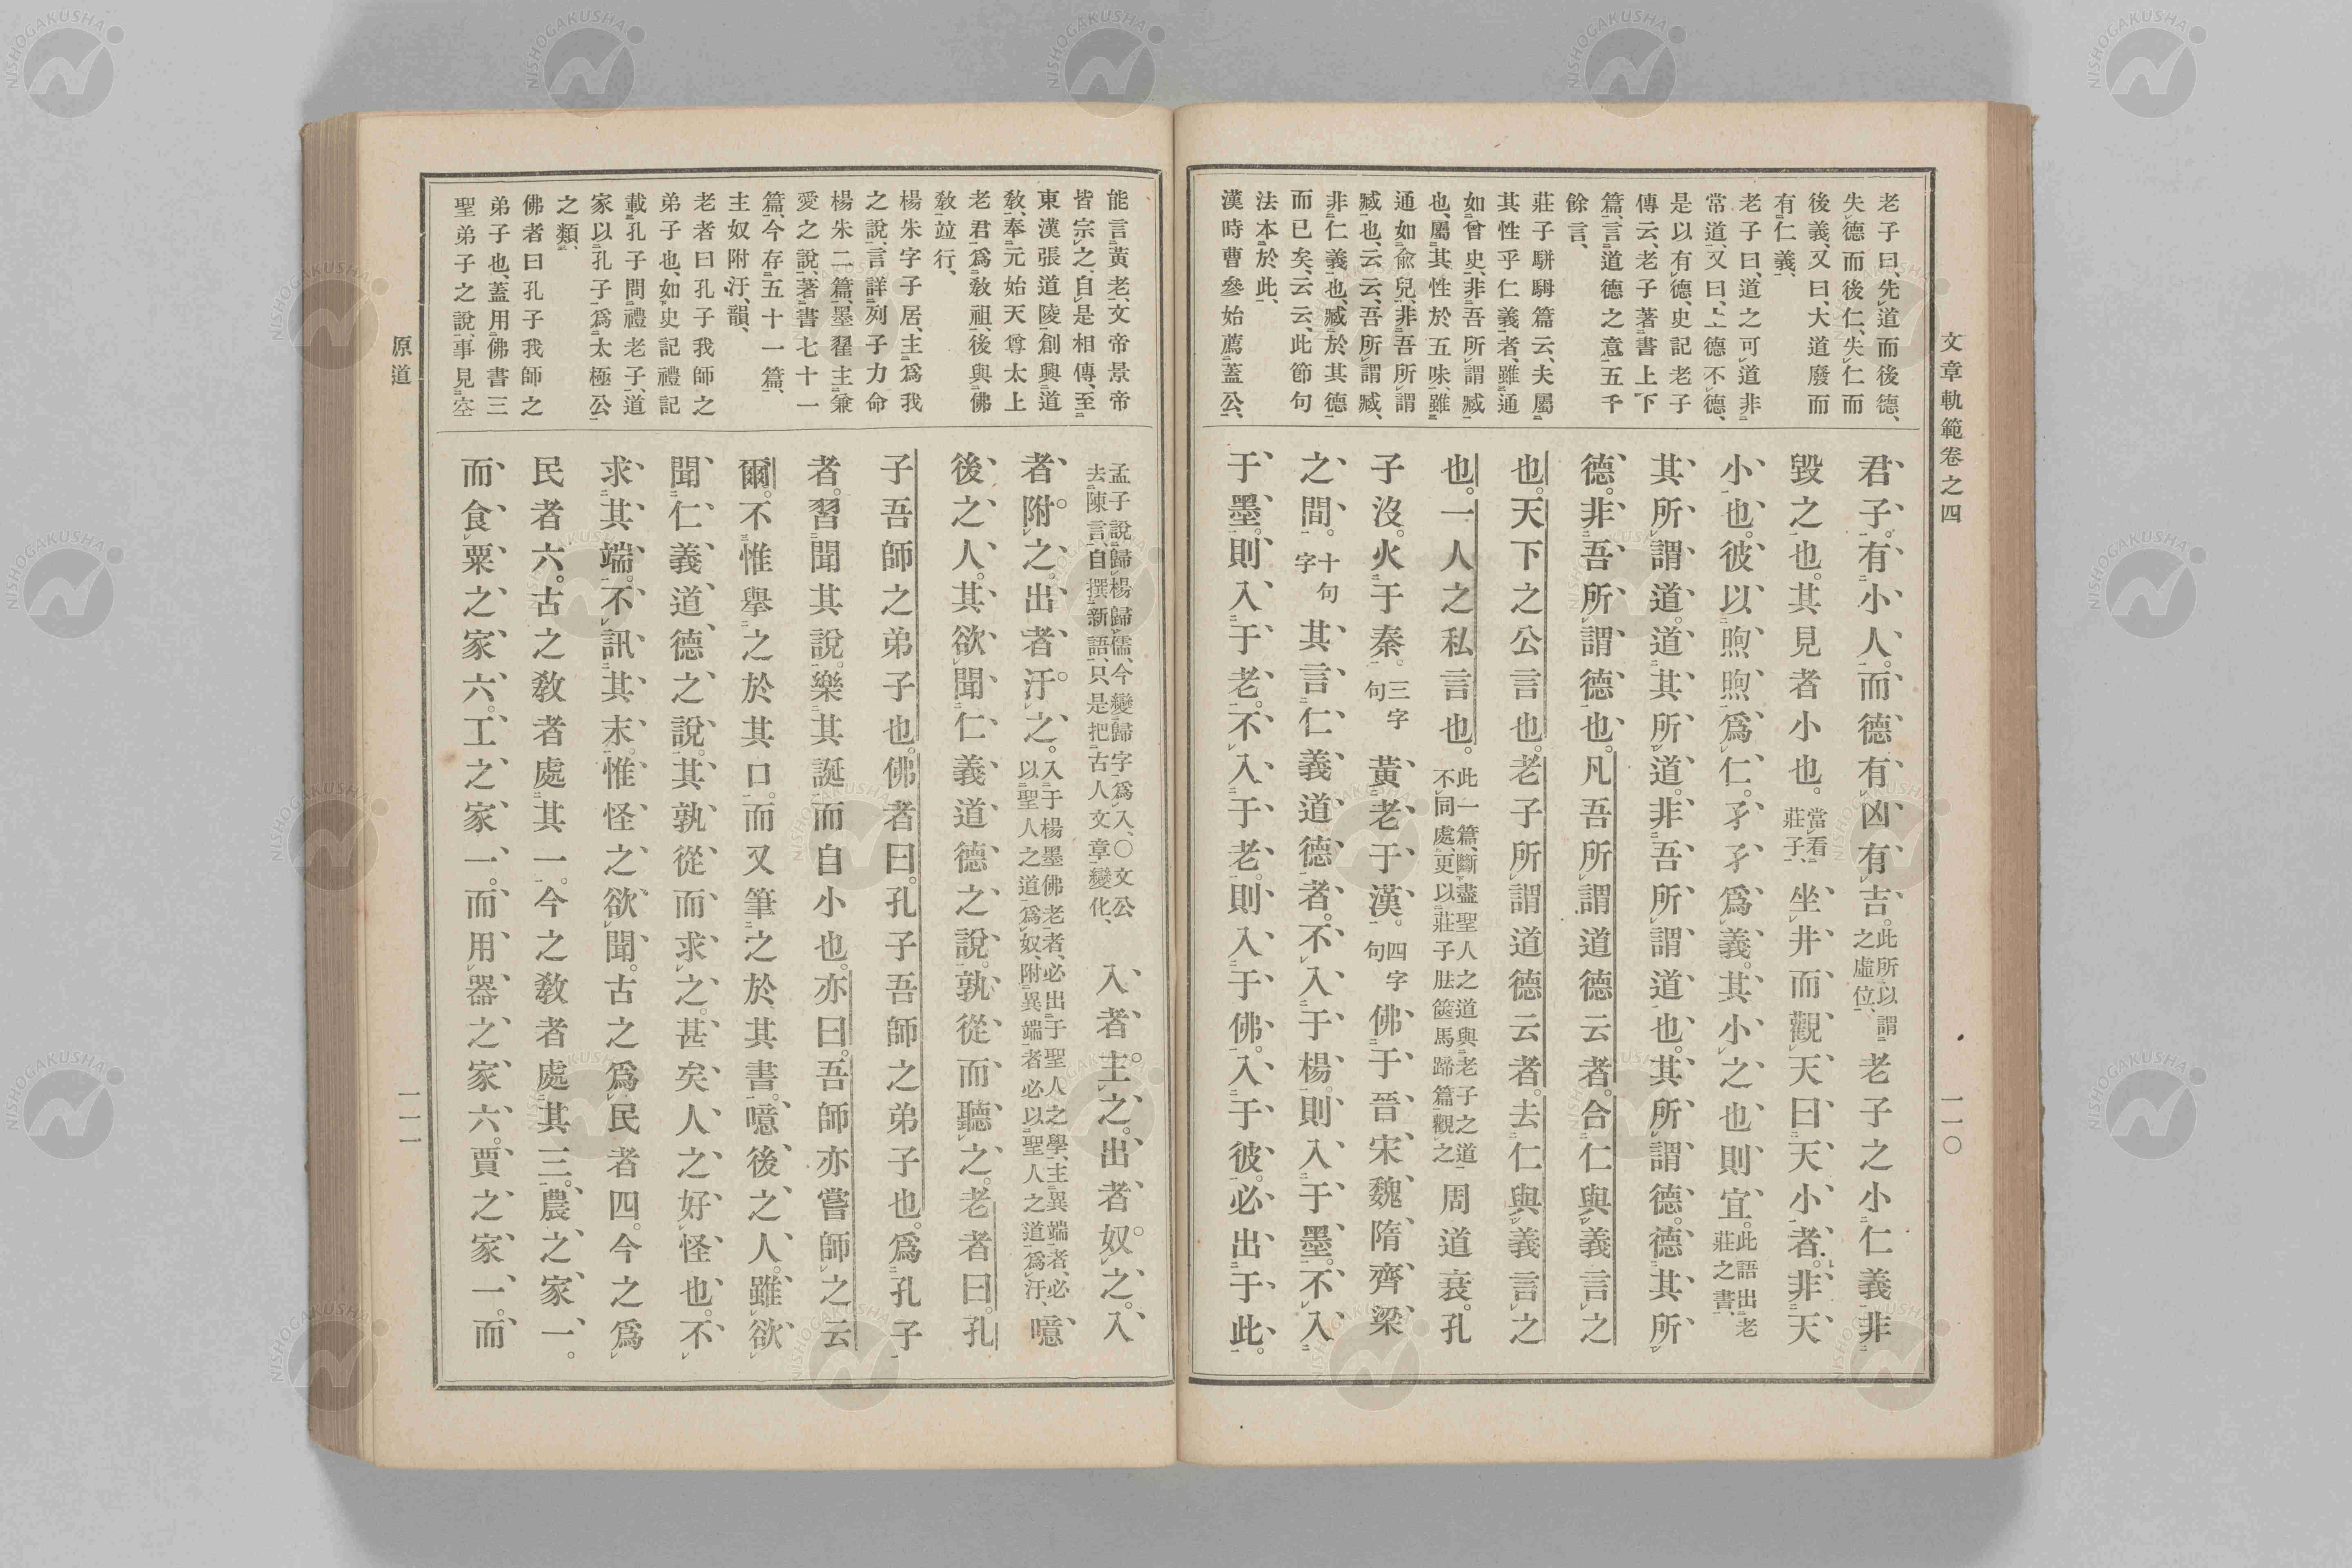 文章軌範卷之四
一一〇
老子曰、先道而後德、
失德而後仁、失仁而
後義、又曰、大道廢而
有仁義、
老子曰、道之可道非
常道、又曰、上德不德、
是以有德、史記老子
傳云、老子著書上下
篇、言道德之意五千
餘言、
莊子駢拇篇云、夫屬
其性乎仁義者、雖通
如曾史、非吾所謂臧
也、屬其性於五味、雖
通如兪兒、非吾所謂
臧也、云云、吾所謂臧、
非仁義也、臧於其德
而已矣、云云、此節句
法本於此、
漢時曹參始薦蓋公、
君子。有小人。而德有凶有吉。此所以謂之虛位、老子之小仁義非
毀之也。其見者小也。當看莊子、坐井而觀天曰天小者。非天
小也。彼以煦煦爲仁。孑孑爲義。其小之也則宜。此語出老莊之書、
其所謂道。道其所道。非吾所謂道也。其所謂德。德其所
德。非吾所謂德也。凡吾所謂道德云者。合仁與義言之
也。天下之公言也。老子所謂道德云者。去仁與義言之
也。一人之私言也。此一篇、斷盡聖人之道與老子之道不同處、更以莊子胠篋馬蹄篇觀之周道衰。孔
子沒。火于秦。三字句黃老于漢。四字句佛于晉宋魏隋齊梁
之間。十字句其言仁義道德者。不入于楊。則入于墨。不入
于墨。則入于老。不入于老。則入于佛。入于彼。必出于此。
能言黃老、文帝景帝
皆宗之、自是相傳、至
東漢張道陵創興道
敎、奉元始天尊太上
老君爲敎祖、後與佛
敎竝行、
楊朱字子居、主爲我
之說、言詳列子力命
楊朱二篇、墨翟主兼
愛之說、著書七十一
篇、今存五十一篇、
主奴附汙、韻、
老者曰孔子我師之
弟子也、如史記禮記
載孔子問禮老子、道
家以孔子爲太極公
之類、
佛者曰孔子我師之
弟子也、蓋用佛書三
聖弟子之說、事見空
孟子說歸楊歸儒、今變歸字爲入、〇文公去陳言、自撰新語、只是把古人文章變化、入者。主之。出者。奴之。入
者。附之。出者。汙之。入于楊墨佛老者、必出于聖人之學、主異端者、必以聖人之道爲奴、附異端者必以聖人之道爲汙、噫
後之人。其欲聞仁義道德之說。孰從而聽之。老者曰。孔
子吾師之弟子也。佛者曰。孔子吾師之弟子也。爲孔子
者。習聞其說。樂其誕而自小也。亦曰。吾師亦嘗師之云
爾。不惟舉之於其口。而又筆之於其書。噫後之人。雖欲
聞仁義道德之說。其孰從而求之。甚矣人之好怪也。不
求其端。不訊其末。惟怪之欲聞。古之爲民者四。今之爲
民者六。古之敎者處其一。今之敎者處其三。農之家一。
而食粟之家六。工之家一。而用器之家六。賈之家一。而
原道
一一一